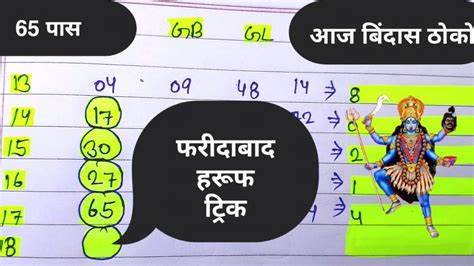 65 पास
GB GL
आज बिंदास ठोको
13 04 09 48 14 ⇒ 8
14 17
15 30
16 27 1
17 65 4
18
फरीदाबाद
हरूफ
ट्रिक